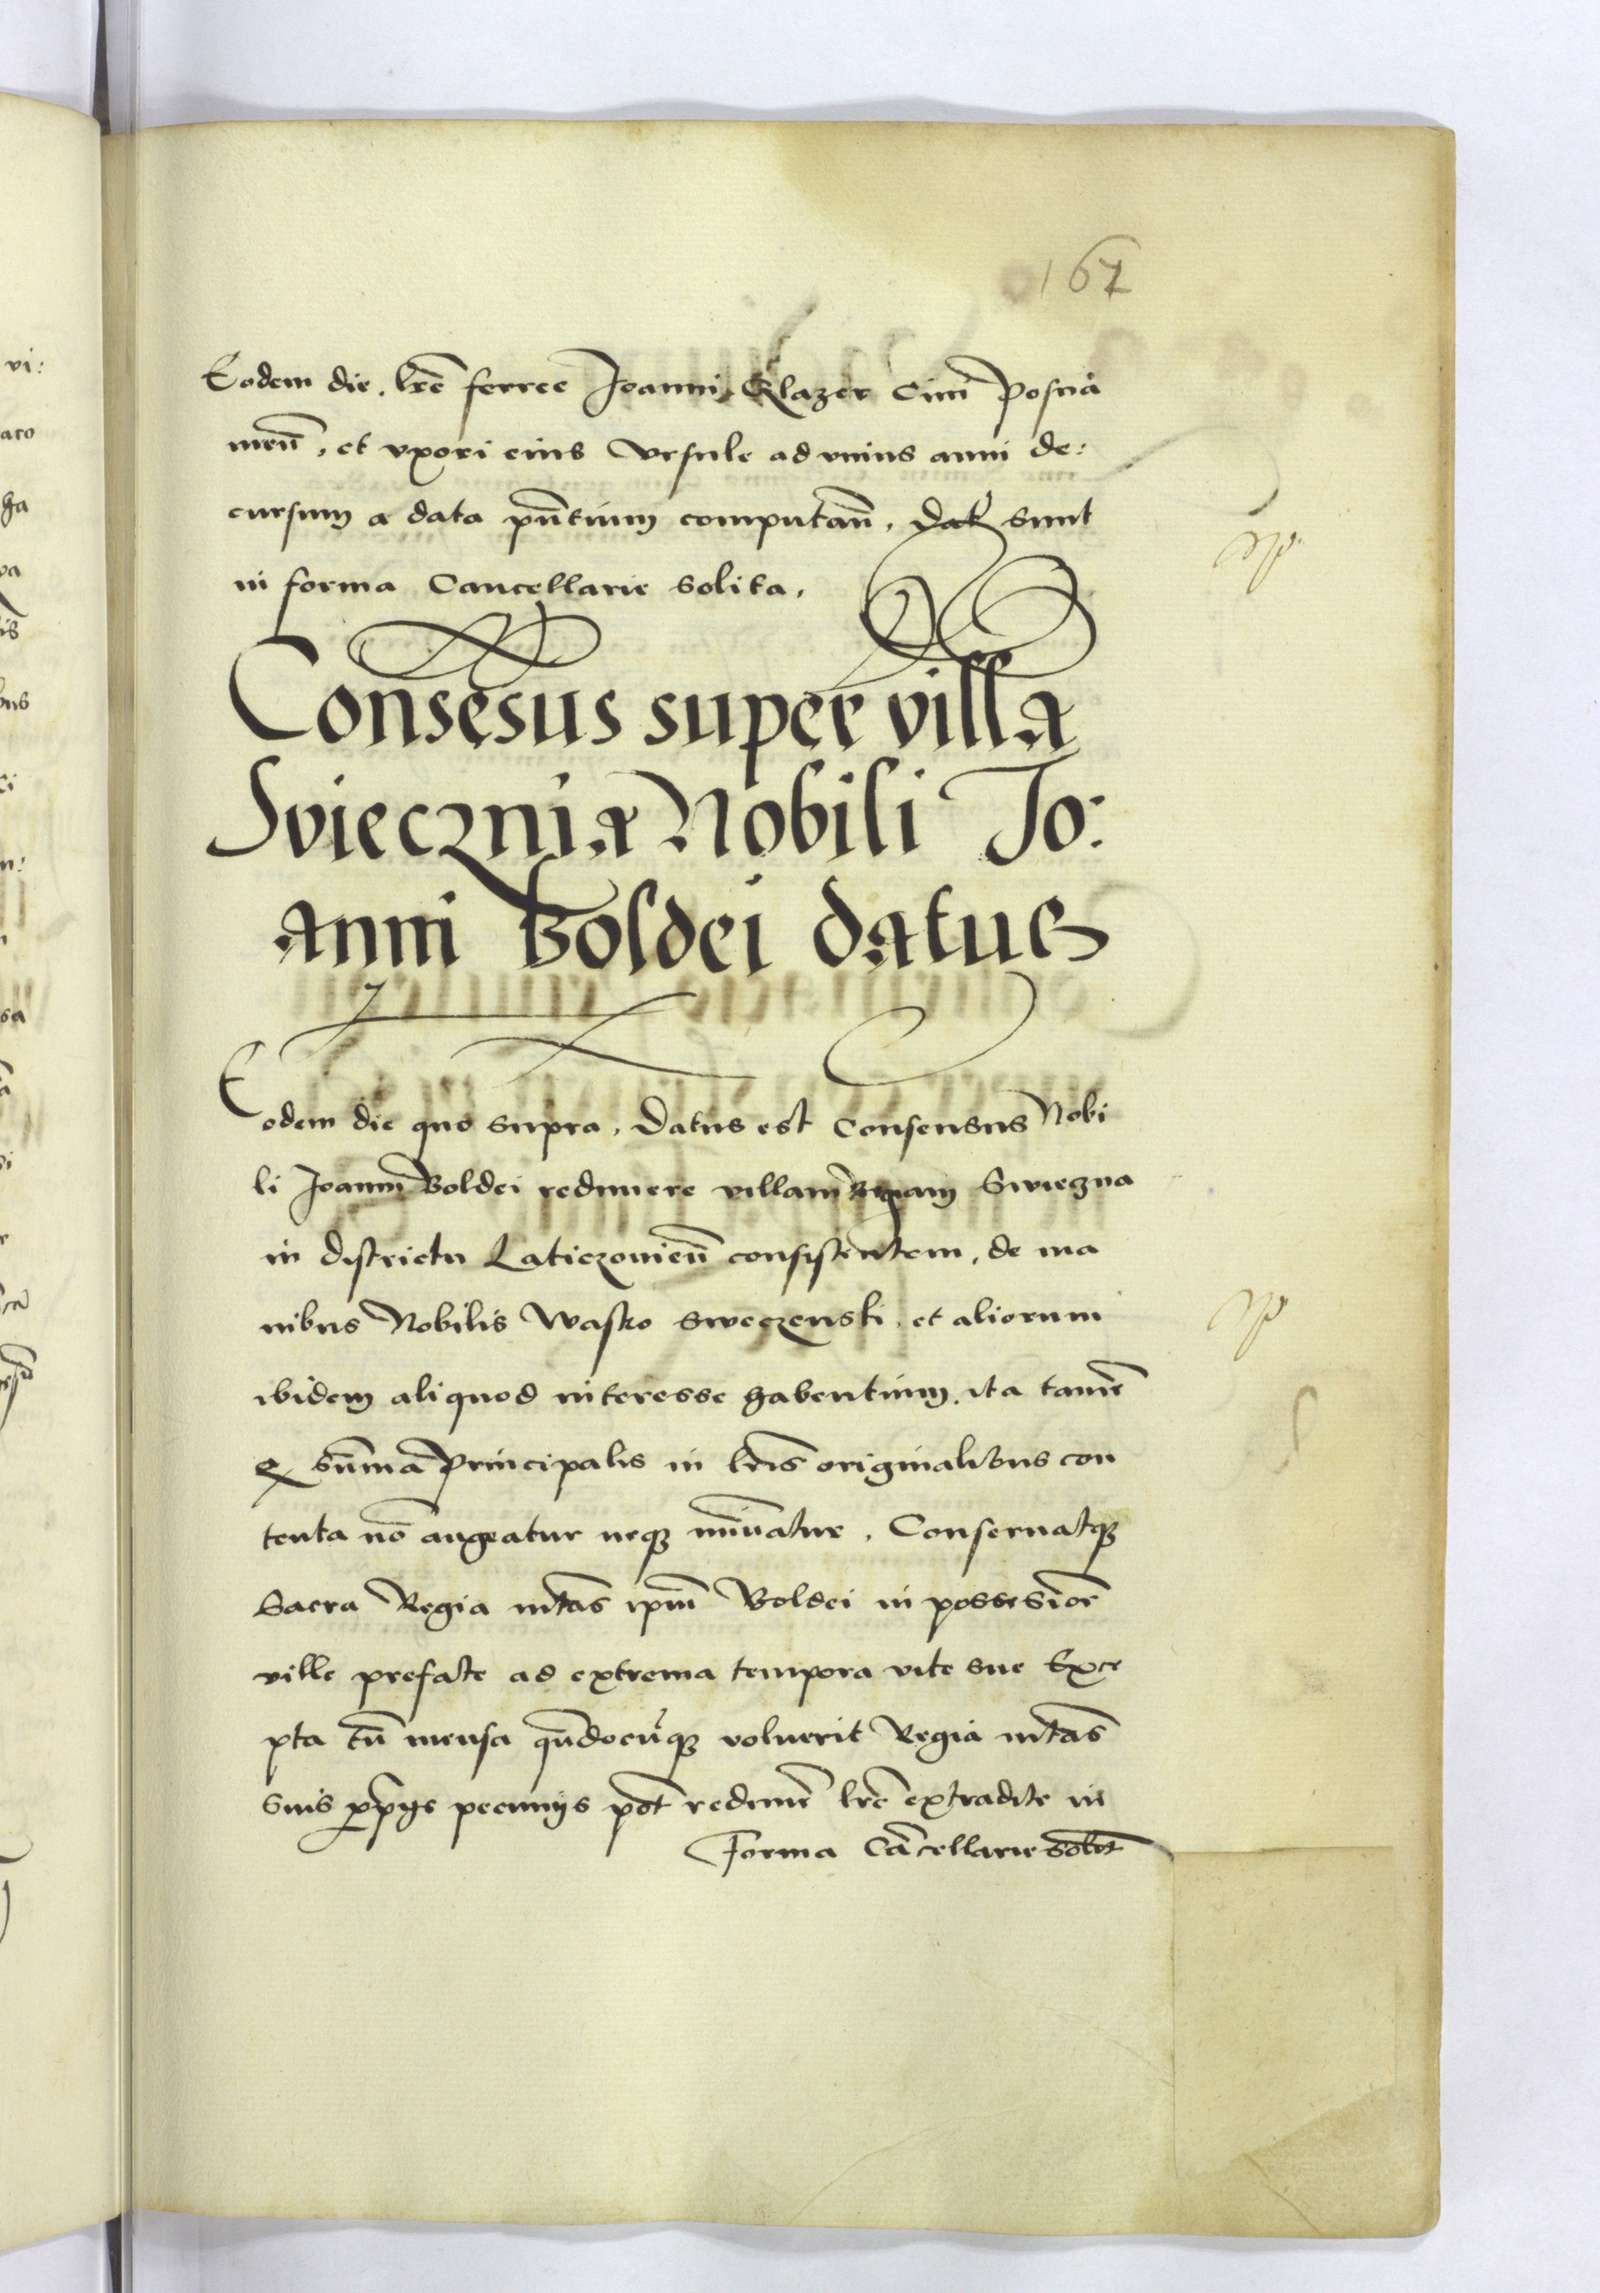 167
Eodem die. lr̃e ferree Joanni Glazer Ciui Posnã
ieñ, et vxori eius Vrsule ad vnius anni de:
cursum a data pñtium computañ, dat sunt
in forma Cancellarie solita.
Consẽsus super villa
Sviecznia Nobili Jo:
anni Boldei datus
Eodem die quo supra, Datus est Consensus Nobi
li Joanni Boldei redimere villam Swiezna
in districtu Laticzouieñ consistentem, de ma
nibus Nobilis Wasko Sweczenski, et aliorum
ibidem aliquod interesse habentium, ita tamẽ
q̃ sum̃a Principalis in lr̃is originalibus con
tenta nõ augeatur neq3 minuatur. Conseruatq3
Sacra Regia mtãs ip̃m Boldei in possesionẽ
ville prefate ad extrema tempora vite sue Exce
pta tñ mensa qñdocũq3 voluerit Regia mtãs
suis pecunijs põt redimẽ lr̃e extradite in
Forma Cãcellarie solit̃